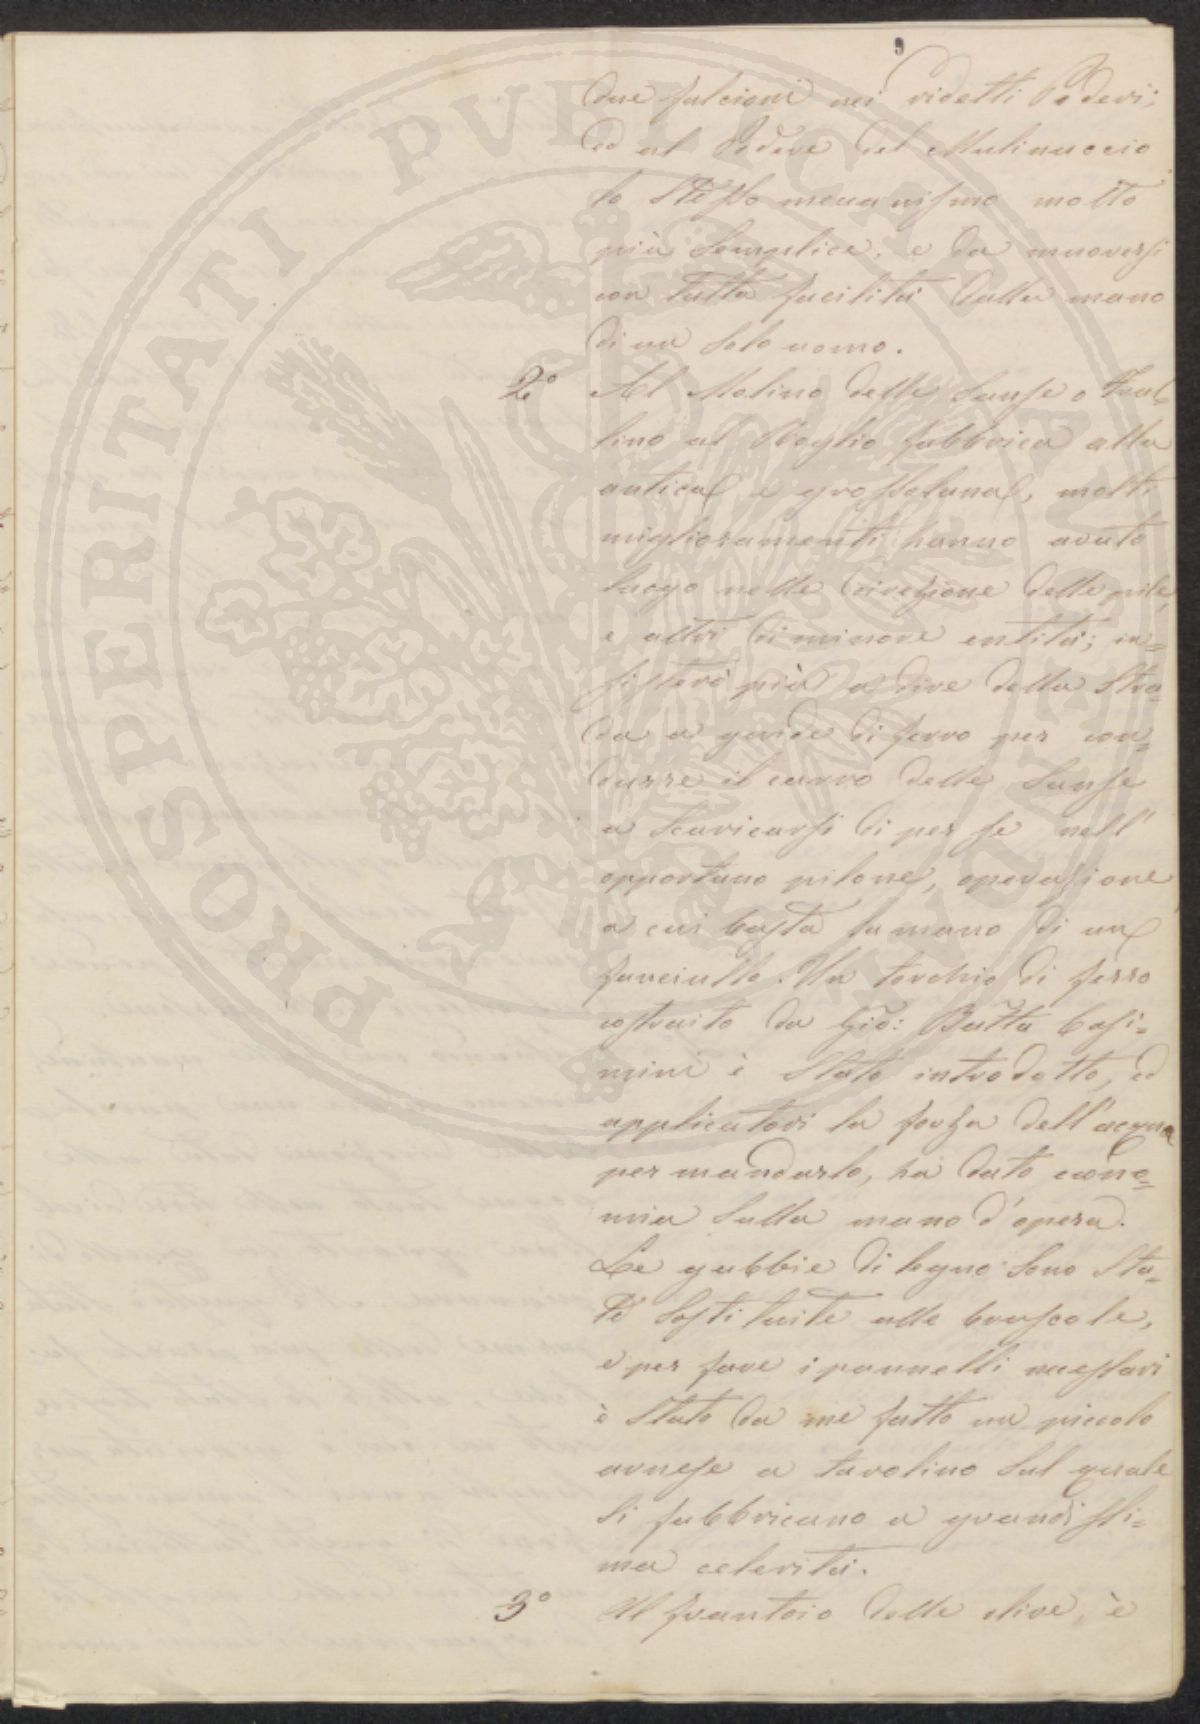 9
due falcioni nei ridetti Poderi;
ed al Podere del Mulinaccio
lo stesso mecanismo molto
più semplice, e da muoversi
con tutta facilità dalla mano
di un solo uomo.
2° Al Molino delle Sanse o Frul=
lino al Poglio fabbrica alla
antica e grossolana, molti
miglioramenti hanno avuto
luogo nelle direzione delle pile,
e altri di minore entità; in=
sisterò più a dire della Stra=
da a guide di ferro per con=
durre il carro delle Sanse
a scaricarsi di per se nell'
opportuno pilone, operazione
a cui basta la mano di un
fanciullo. Un torchio di ferro
costruito da Gio: Batta Casi=
mini è stato introdotto, ed
applicatovi la forza dell'acqua
per mandarlo, ha dato econo=
mia sulla mano d'opera.
Le gabbie di legno sono sta=
te sostituite alle bruscole,
e per fare i pannelli necessari
è stato da me fatto un piccolo
arnese a tavolino sul quale
si fabbricano a grandissi=
ma celerità.
3° Al frantoio delle olive, è
PROSPERITATI PUBLICAE AUGENDAE